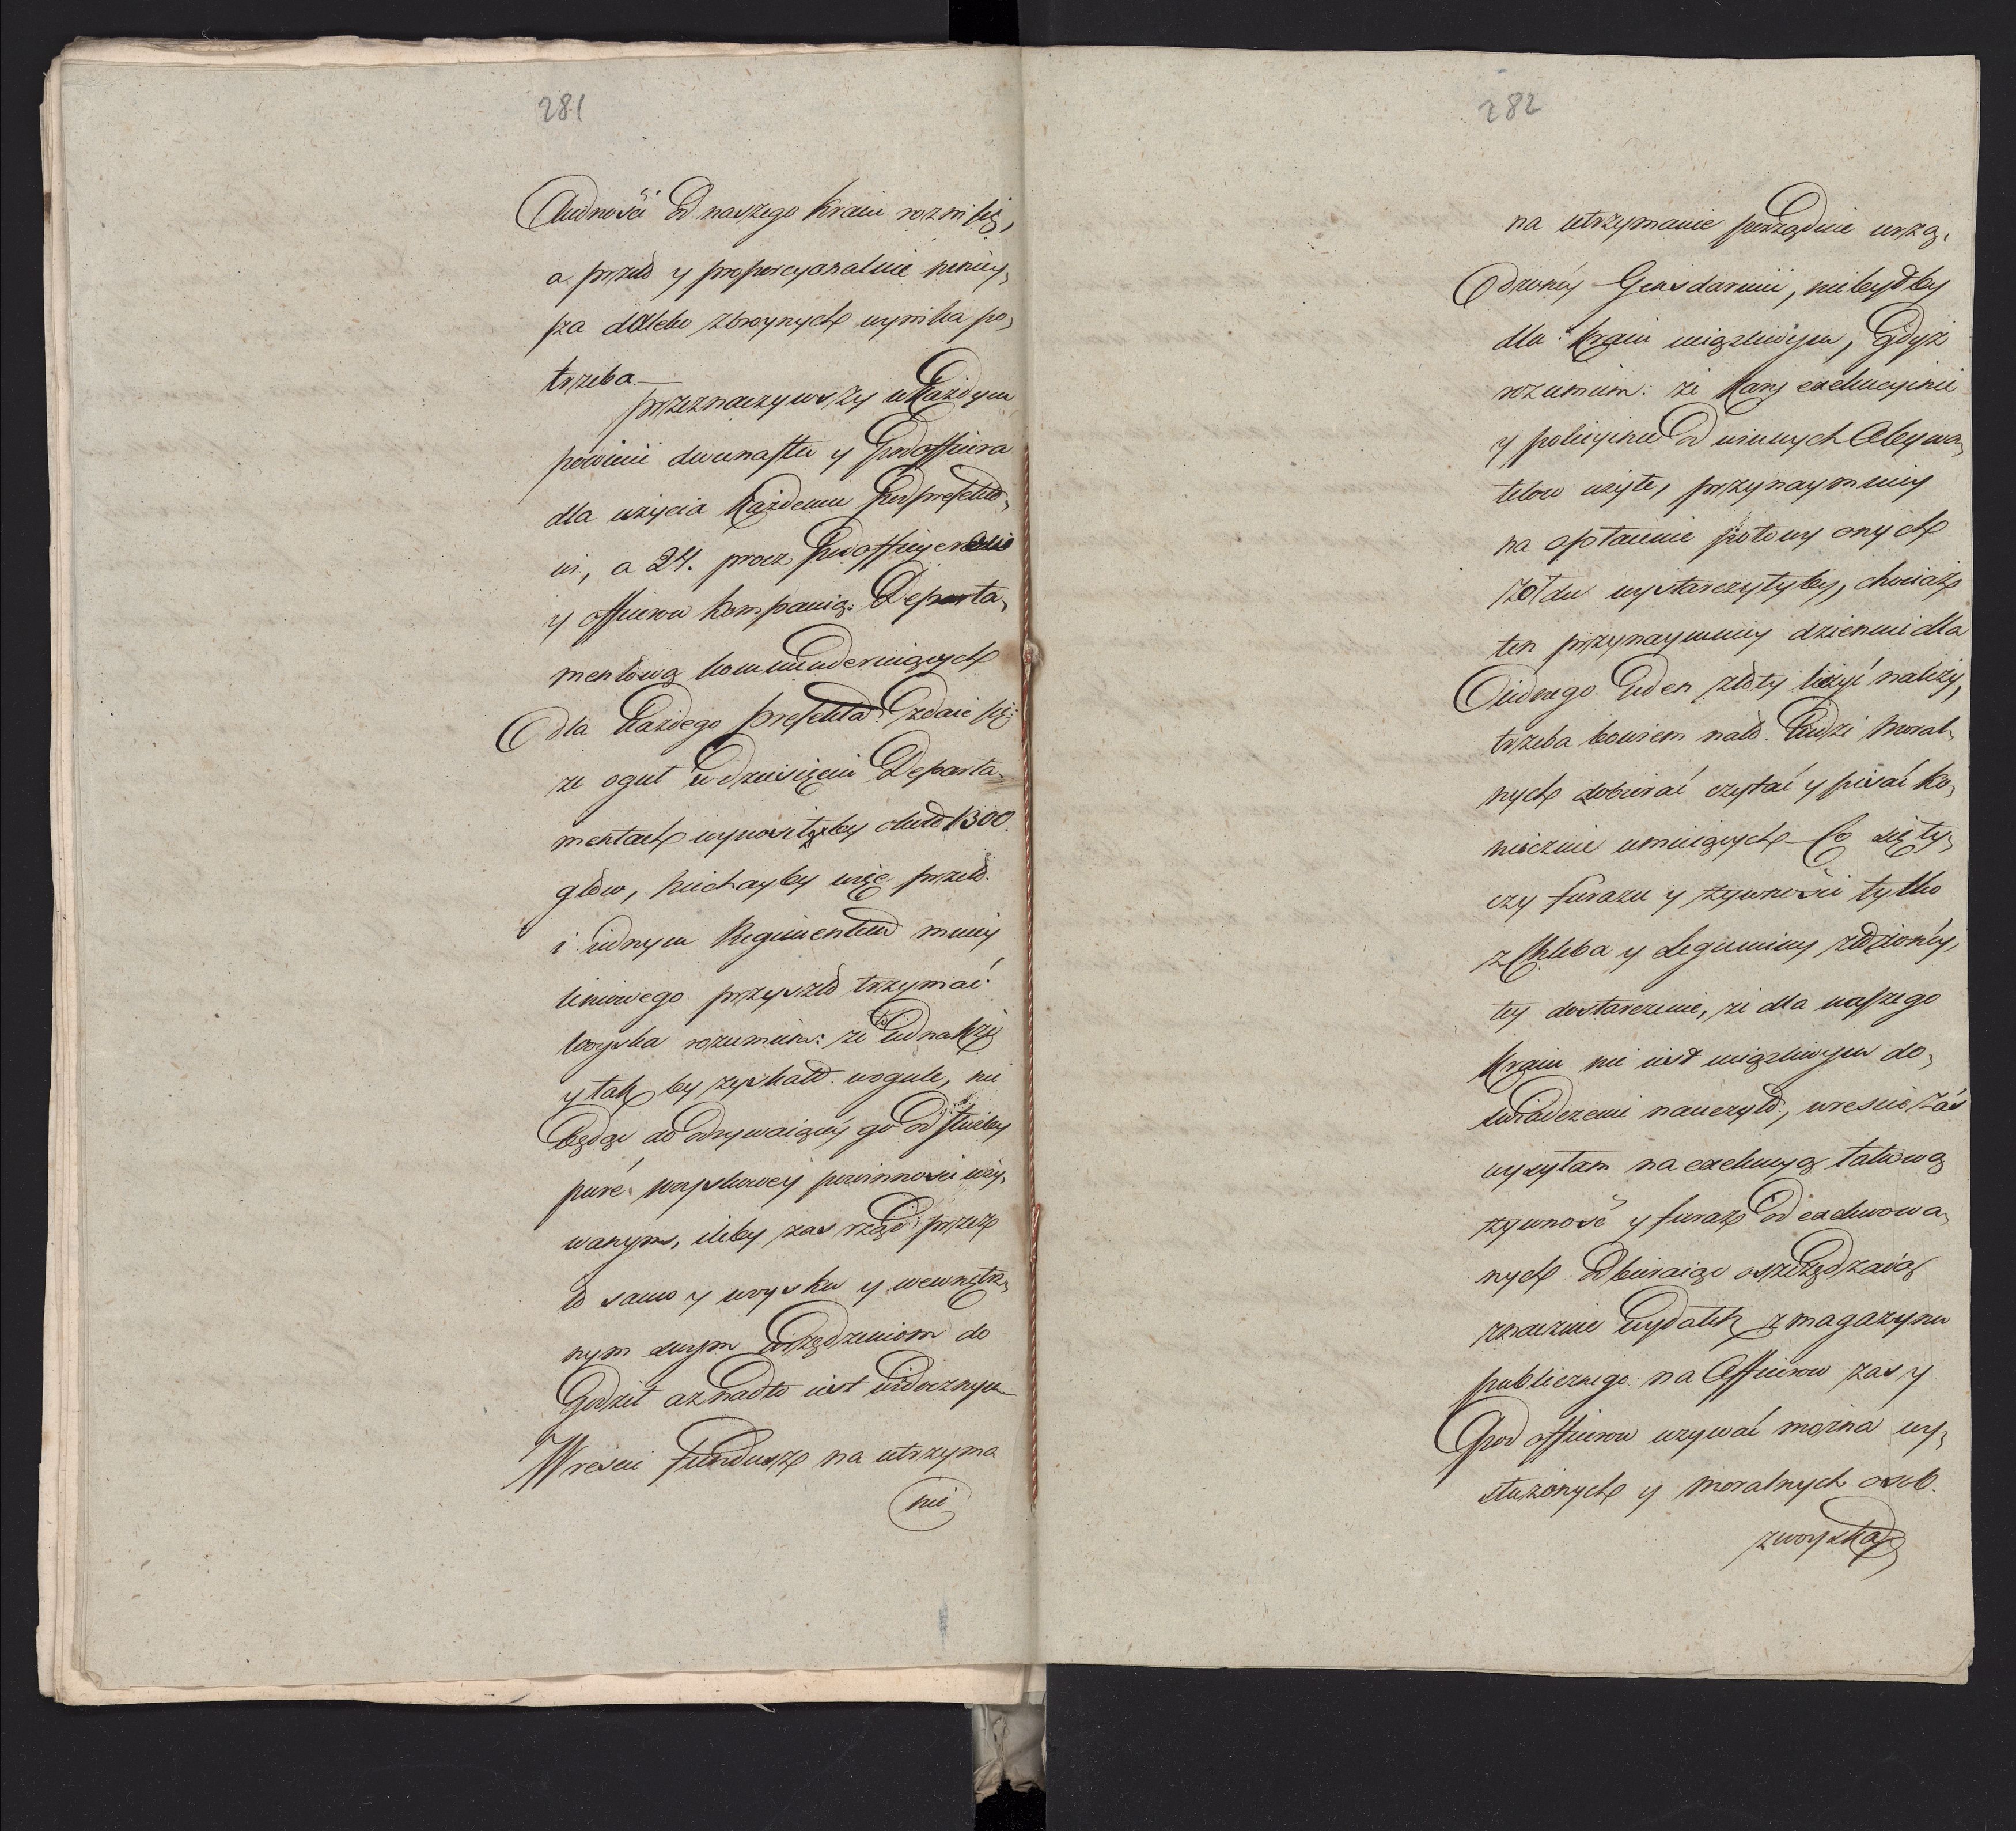 281
Ludności od naszego kraiu rozni się,
a przeto y proporcyonalnie mniey,
sza daleko zbroynych wynika po,
trzeba.—
przeznaczywszy w każdym
powiecie dwunastu y Podofficera
dla użycia każdemu Podprefekto,
wi, a 24. procz Podofficyerow
y officera kompanią Departa,
mentową kommenderuiących
dla każdego prefekta. Zdaie się
ze ogół w dziesięciu Departa,
mentach wynosiłby około 1300.
głów, niechayby więc przeto
i iednym Regimentem mniey
liniowego przyszło trzymać
woyska rozumiem: że
y tak by zyskało w ogule, nie
będąc do odrywaiącey go od służby
puré woyskowey powinności uży,
wanym, ileby zas rząd przez
to samo y woysku y wewnętrz,
nym swym urządzeniom do
godził aż nadto iest widocznym
Wreście fundusz na utrzyma
nie
282
na utrzymanie porządnie urzą,
dzoney Gensdarmii, niebyłby
dla kraiu uciążliwym, Gdyż
rozumiem: że kary exekucyine
y policyine od winnych Obywa,
telow użyte, przynaymniey
na opłacenie połowy onych
żołdu wystarczyłyby, chociaż
ten przynaymniey dziennie dla
iednego ieden złoty liczyć należy,
trzeba bowiem na to ludzi moral,
nych dobierać czytać y pisać ko,
niecznie umieiących – Co się ty,
czy furażu y żywności tylko
z Chleba y Leguminy złożoney,
tey dostarczenie, że dla naszego
Kraiu nie iest uciążliwym do,
świadczenie nauczyło, wreście zaś
wysyłam na exekucyą takową
żywność y furaż od exekwowa,
nych odbieraiąc oszczędzaią
znacznie wydatek z magazynu
publicznego na Officerow zas y
Pod officerow używać można wy,
służonych y moralnych osob
z woyska